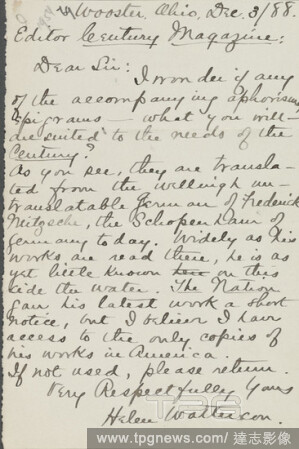 Wooster, Ohio, Dec. 3/88.
Editor Century Magazine:
Dear Sir:
I wonder if any
of the accompanying aphorisms,
epigrams — what you will —
are suited to the needs of the
Century?
As you see, they are transla-
ted from the wellnigh un-
translatable German of Frederick
Nietzsche, the Schopenhauer of
Germany today. Widely as his
works are read there, he is as
yet little known here on this
side the water. The Nation
gave his latest work a short
notice, but I believe I have
access to the only copies of
his works in America.
If not used, please return.
Very Respectfully Yours
Helen Watterson.
TPG
www.tpgnews.com / 達志影像